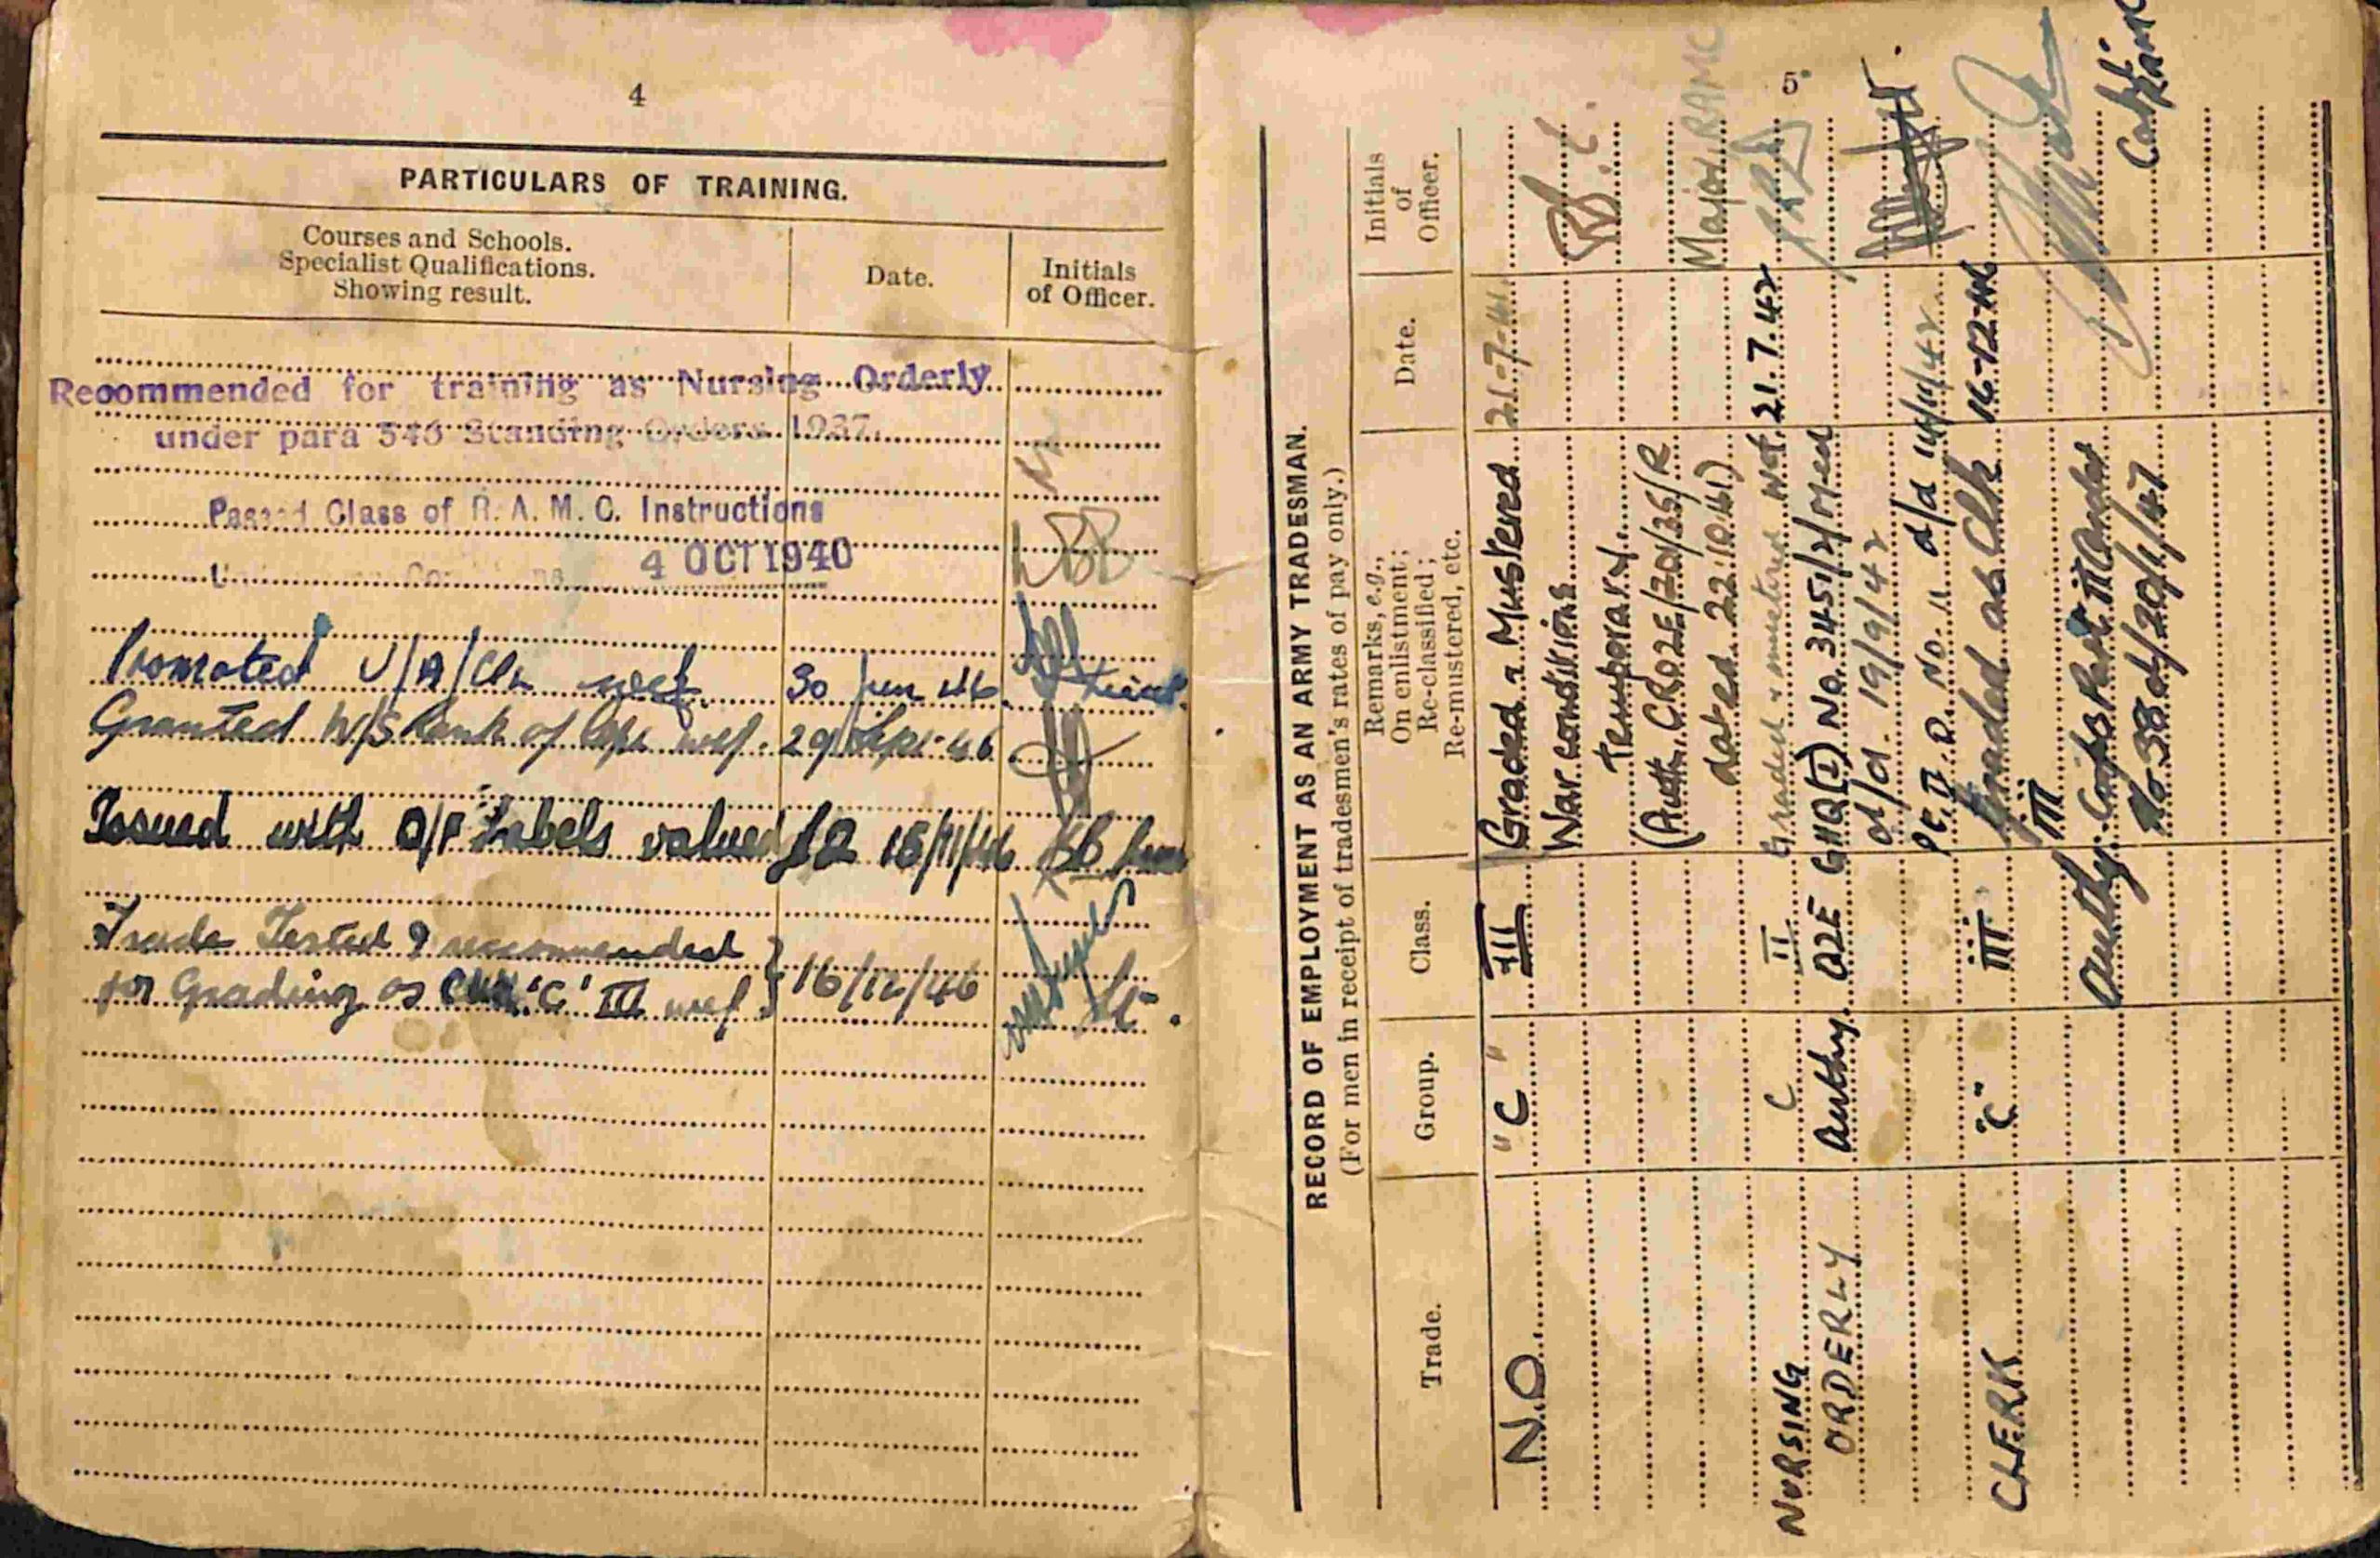 4
PARTICULARS OF TRAINING.
Courses and Schools.
Specialist Qualifications.
Showing result.
Date.
Initials
of Officer.
Recommended for training as Nursing Orderly
under para 546 Standing Orders 1937.
Passed Class of R. A. M. C. Instructions
4 OCT 1940
Promoted U/A/Cpl wef. 30 Jun 46
Granted W/S Rank of Cpl wef. 29 Sept 46
Issued with O/F Labels valued £2 15/11/46
Trade Tested & recommended
for Grading as Clk 'C' III wef 16/12/46
5
RECORD OF EMPLOYMENT AS AN ARMY TRADESMAN.
(For men in receipt of tradesmen's rates of pay only.)
Trade.
Group.
Class.
Remarks, e.g.,
On enlistment;
Re-classified;
Re-mustered, etc.
Date.
Initials
of
Officer.
N.O. "C" III Graded & Mustered 21-7-41
War conditions
Temporary.
(Auth. CRO2E/20/35/R
dated 22.10.41)
Major. RAMC
NURSING C II Graded & mustered Wef. 21.7.42
ORDERLY Authy. O2E GHQ(2) No. 3451/2/Med
d/d. 19/9/42
No. 11 d/d
CLERK "C" III Graded as Clk 16-12-46
III
Authy. Part II Order
No 38 d/20/1/47
Capt.